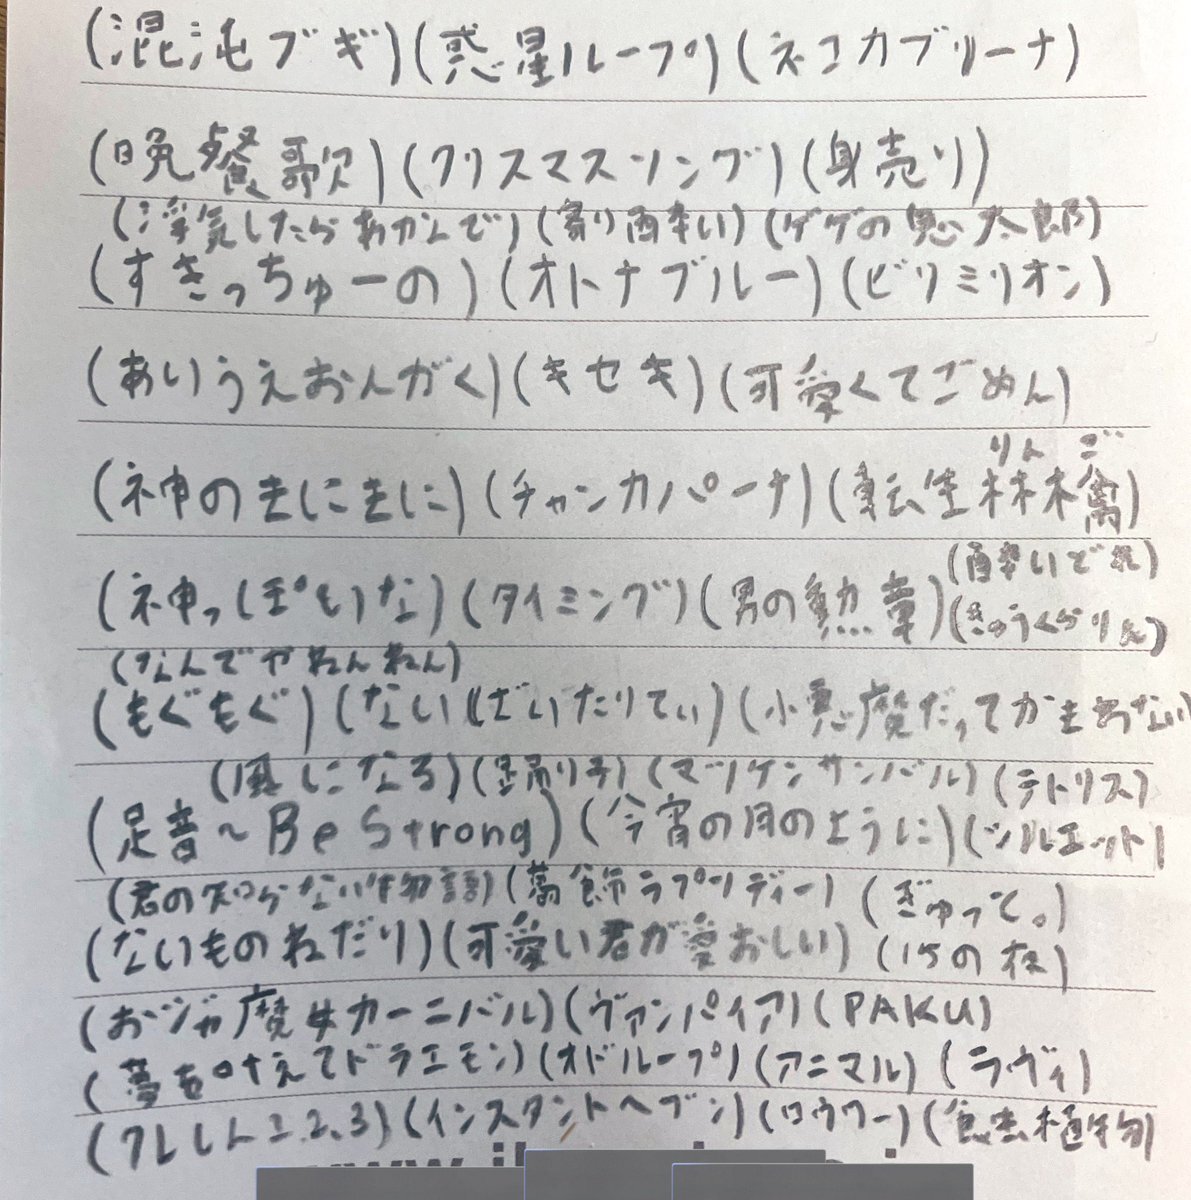 (混沌ブギ)(惑星ループ)(ネコカブリーナ)
(晩餐歌)(クリスマスソング)(身売り)
(浮気したらあかんで)(寄り酔い)(ゲゲゲの鬼太郎)
(すきっちゅーの)(オトナブルー)(ビリミリオン)
(あいうえおんがく)(キセキ)(可愛くてごめん)
りんご
(神のまにまに)(チャンカパーナ)(転生林檎)
(酔いどれ)
(神っぽいな)(タイミング)(男の勲章)(きゅうくらりん)
(なんでやねんねん)
(もぐもぐ)(ないばいたりてぃ)(小悪魔だってかまわない)
(風になる)(踊り子)(マツケンサンバル)(テトリス)
(足音~Be Strong)(今宵の月のように)(シルエット)
(君の知らない物語)(葛飾ラプソディー)(ぎゅっと。)
(ないものねだり)(可愛い君が愛おしい)(15の夜)
(おジャ魔女カーニバル)(ヴァンパイア)(PAKU)
(夢を叶えてドラエモン)(オドループ)(アニマル)(ラヴィ)
(クレしん1.2.3)(インスタントヘブン)(ロウワー)(食虫植物)